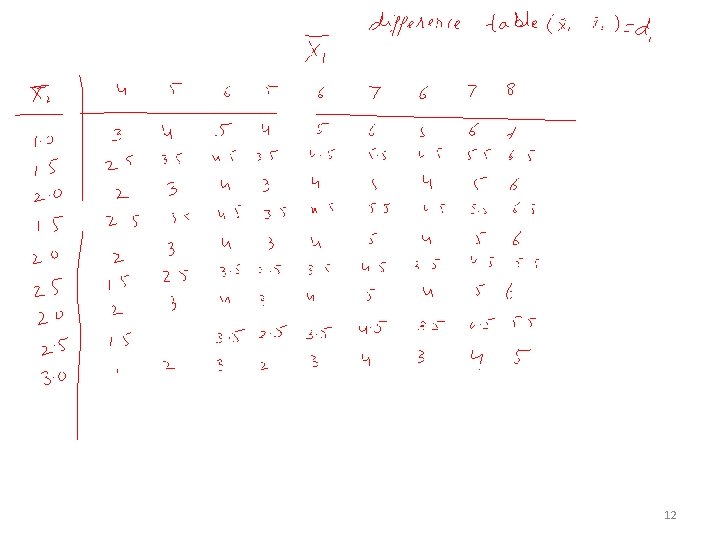 difference table (x̄₁ x̄₂) = d₁
X̄₁
X̄₂ 4 5 6 5 6 7 6 7 8
1.0 3 4 .5 4 5 6 5 6 7
15 25 35 45 35 4.5 5.5 45 55 65
2.0 2 3 4 3 4 5 4 5 6
15 25 35 45 35 45 55 45 5.5 65
20 2 3 4 3 4 5 4 5 6
25 15 25 3.5 2.5 35 45 35 45 55
20 2 3 4 3 4 5 4 5 6
2.5 15 3.5 2.5 3.5 4.5 3.5 4.5 55
3.0 1 2 3 2 3 4 3 4 5
12